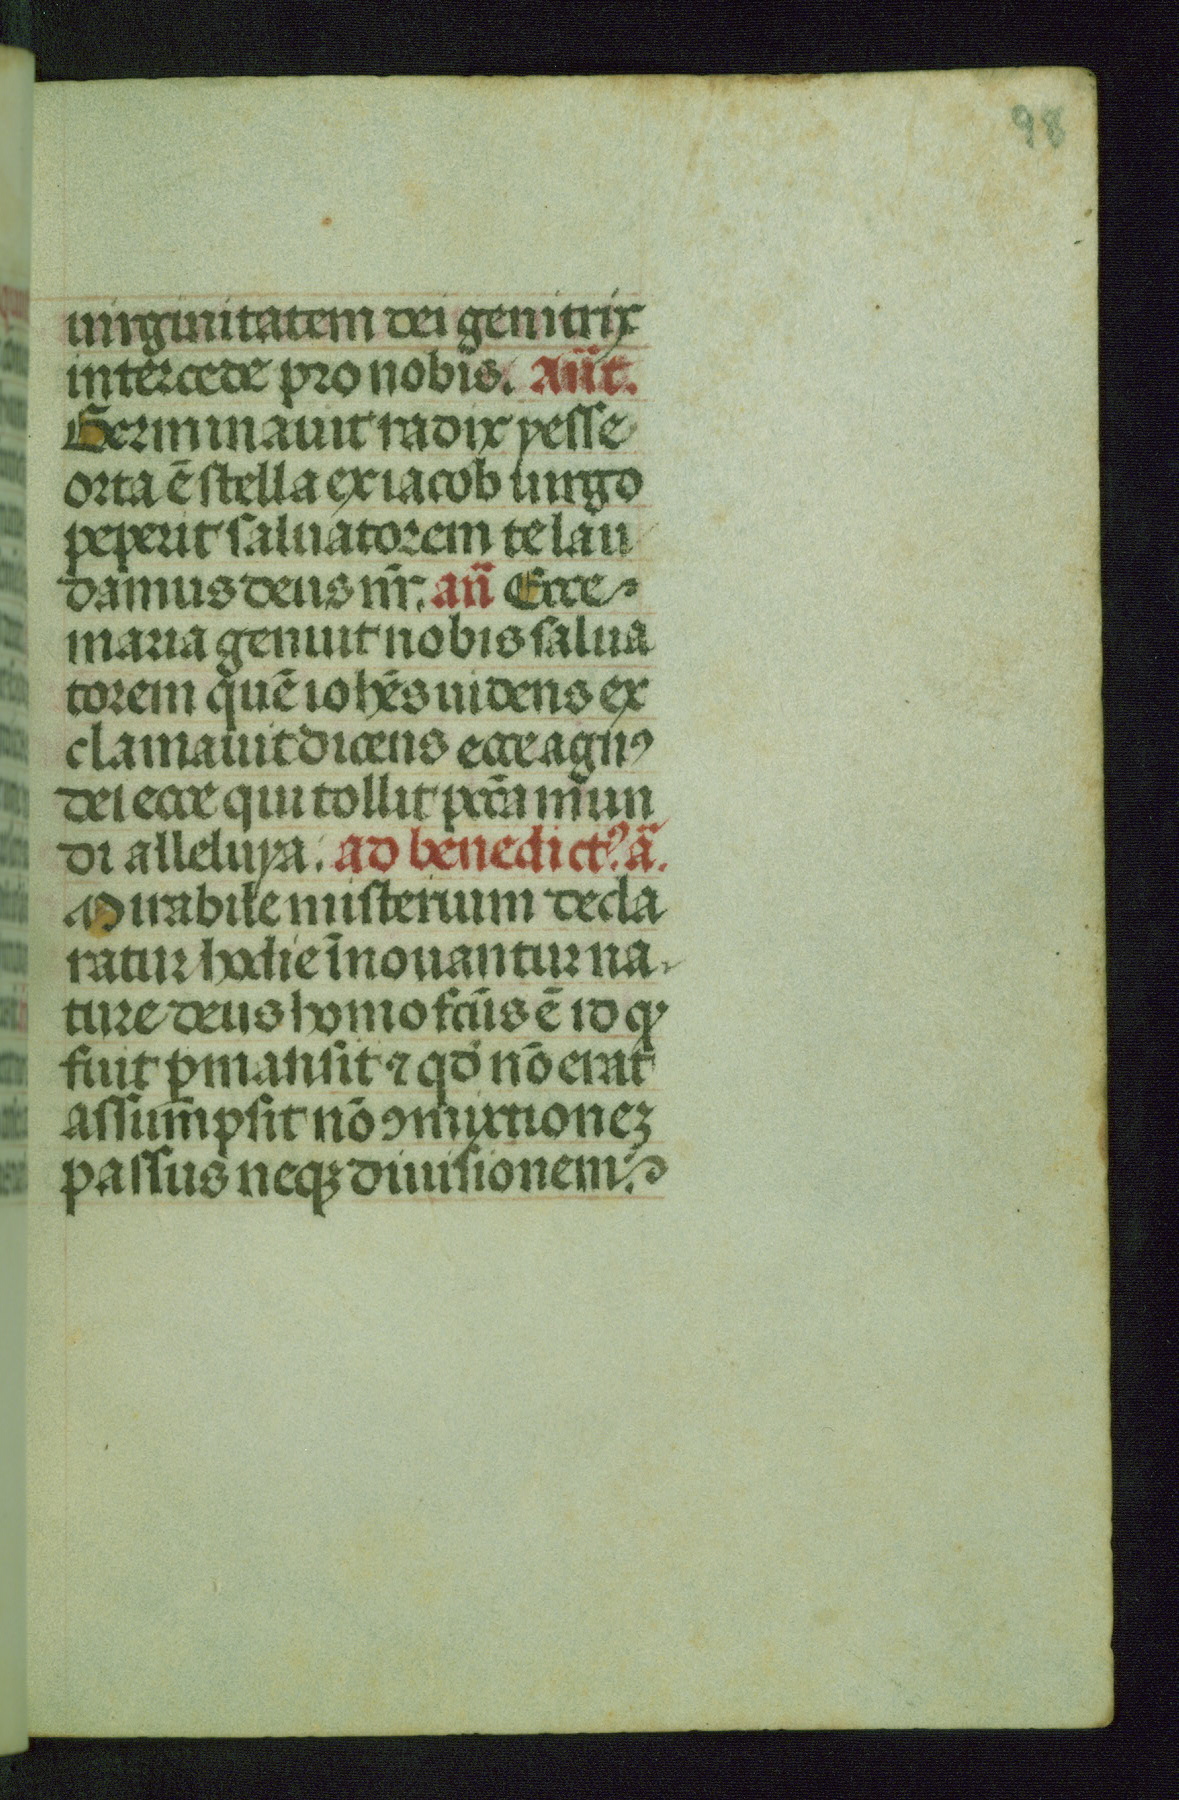 98
uirginitatem dei genitrix
intercede pro nobis. Añt.
Germinauit radix yesse
orta ē stella ex iacob uirgo
peperit saluatorem te lau
damus deus nr̄. añ Ecce
maria genuit nobis salua
torem quē iohēs uidens ex
clamauit dicens ecce agnꝰ
dei ecce qui tollit pctā mun
di alleluya. ad benedictꝰ. ā.
Mirabile misterium decla
ratur hodie īnouantur na
ture deus homo fctūs ē id qꝫ
fuit ꝑmansit ⁊ qđ nō erat
assum̄psit nō ꝯmixtioneꝫ
passus neqꝫ diuisionem.